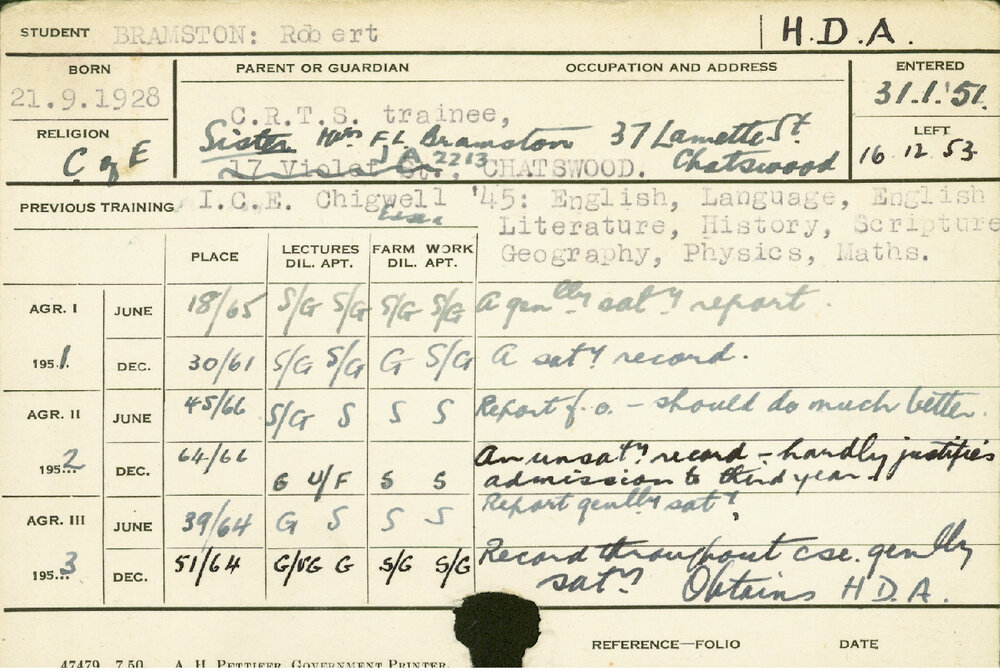 STUDENT BRAMSTON: Robert H.D.A.
BORN PARENT OR GUARDIAN OCCUPATION AND ADDRESS ENTERED
21.9.1928 31.1.'51.
C.R.T.S. trainee,
RELIGION Sister F.L. Bramston 37 Lamette St LEFT
C of E J A 2213 Chatswood 16.12.53.
17 Violet St., CHATSWOOD.
PREVIOUS TRAINING I.C.E. Chigwell '45: English, Language, English
Essex Literature, History, Scripture
Geography, Physics, Maths.
PLACE LECTURES FARM WORK
DIL. APT. DIL. APT.
AGR. I JUNE 18/65 S/G S/G S/G S/G A genlly satY report.
1951. DEC. 30/61 S/G S/G G S/G A satY record.
AGR. II JUNE 45/66 S/G S S S Report f.o. - should do much better.
1952 DEC. 64/66 G U/F S S An unsatY record - hardly justifies
admission to third year.
AGR. III JUNE 39/64 G S S S Report genlly satY
1953 DEC. 51/64 G/VG G S/G S/G Record throughout cse. genlly
satY Obtains H.D.A.
REFERENCE—FOLIO DATE
47479 7.50 A. H. PETTIFER, GOVERNMENT PRINTER.